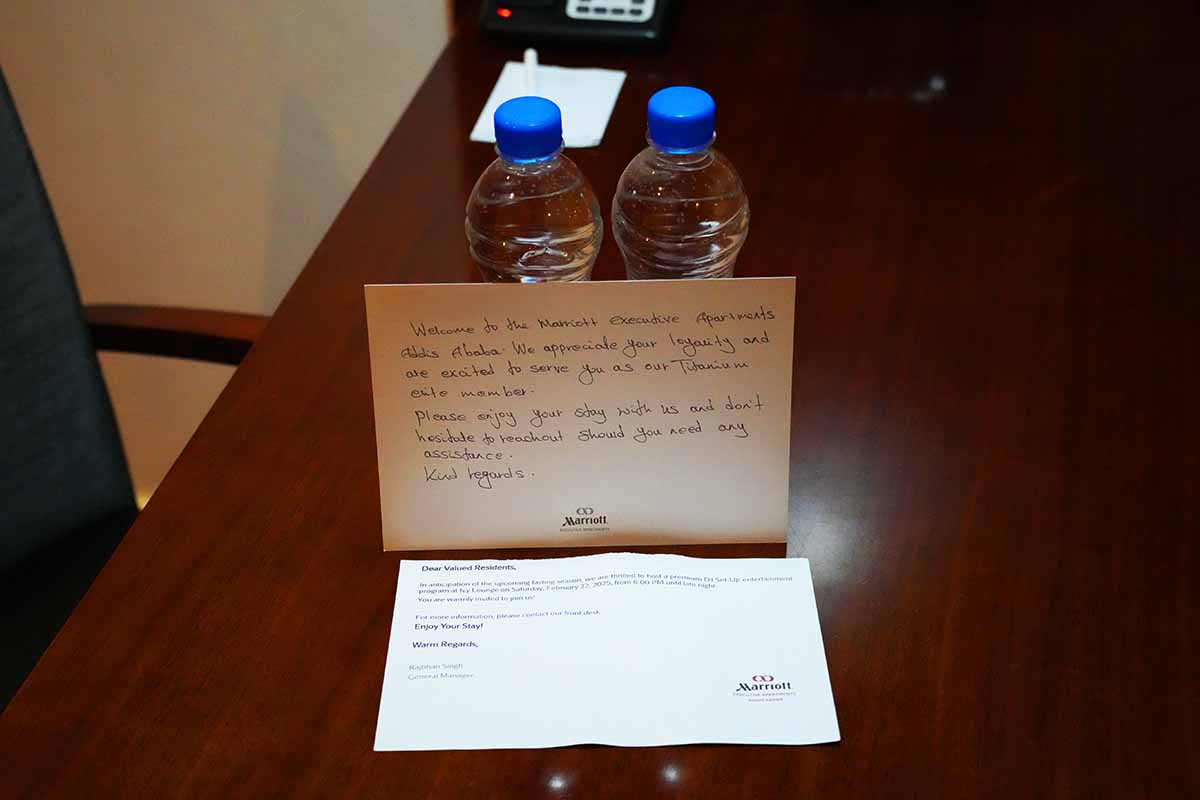 Welcome to the Marriott Executive Apartments
Addis Ababa. We appreciate your loyality and
are excited to serve you as our Titanium
elite member.
Please enjoy your stay with us and don't
hesitate to reachout should you need any
assistance.
Kind regards.
Marriott
EXECUTIVE APARTMENTS
Dear Valued Residents,
In anticipation of the upcoming fasting season, we are thrilled to host a premium DJ Set-Up entertainment
program at Ivy Lounge on Saturday, February 22, 2025, from 6:00 PM until late night.
You are warmly invited to join us!
For more information, please contact our front desk.
Enjoy Your Stay!
Warm Regards,
Rajbhan Singh
General Manager
Marriott
EXECUTIVE APARTMENTS
ADDIS ABABA